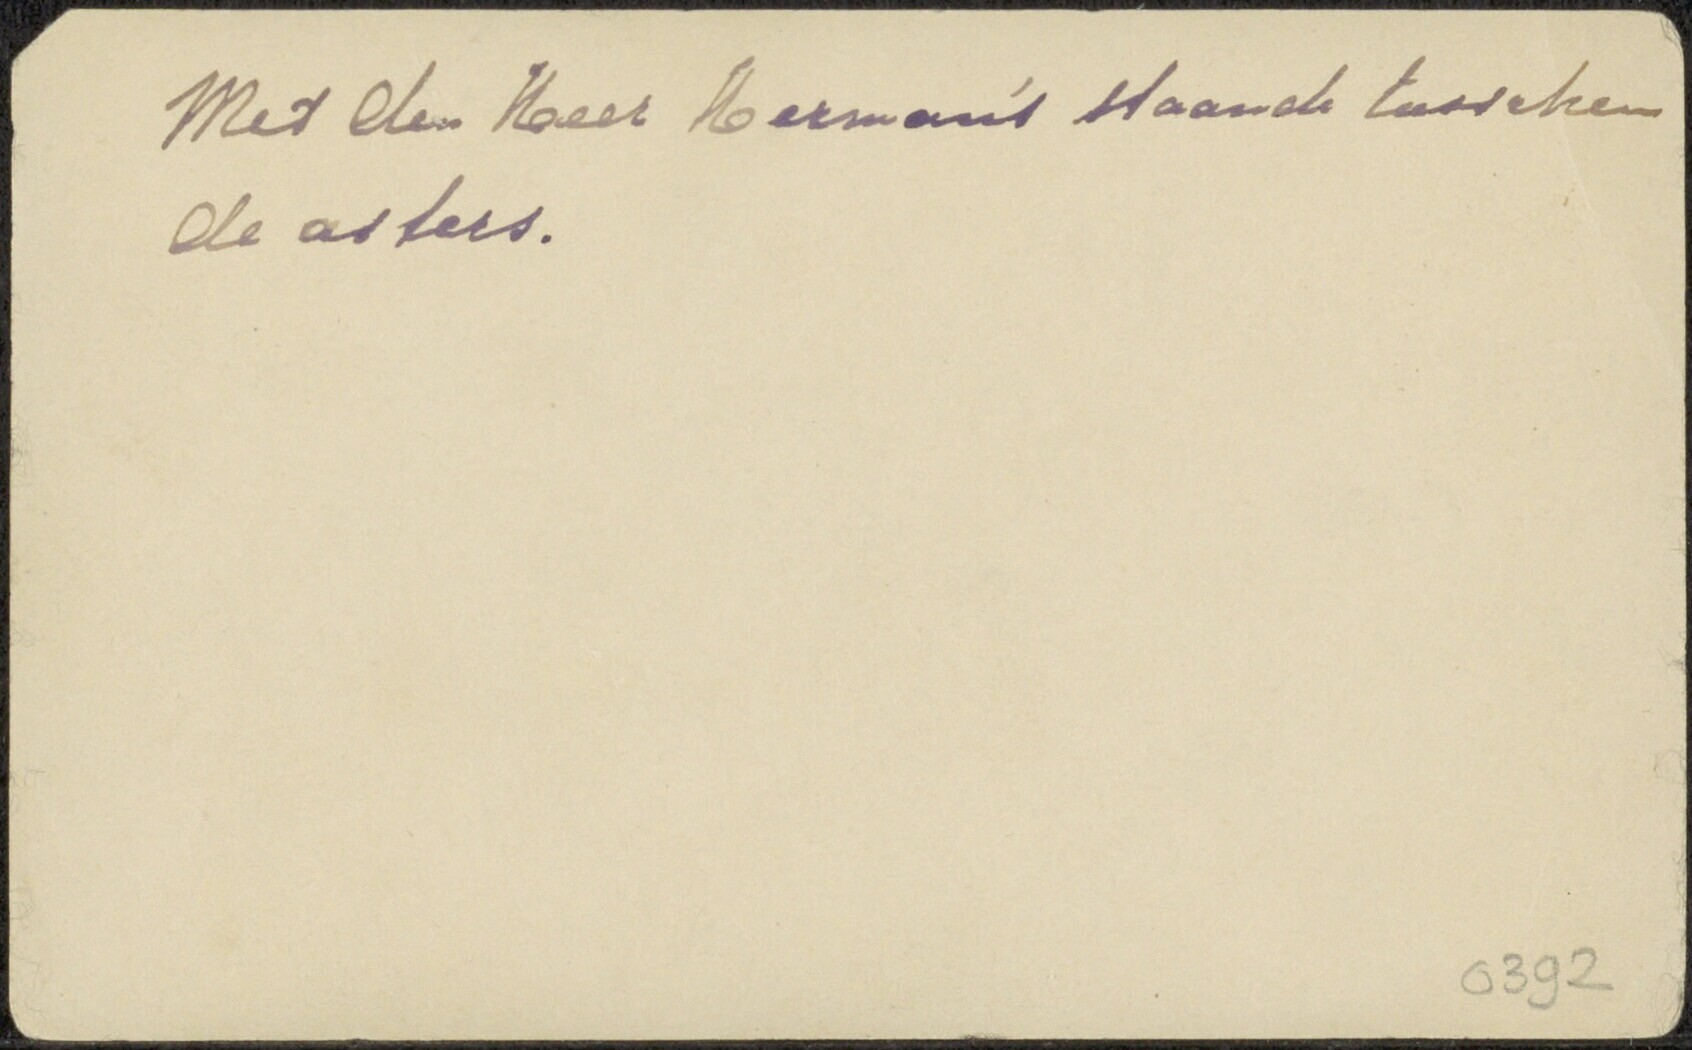 Met den Heer Herman's staande tusschen
de asters.
0392